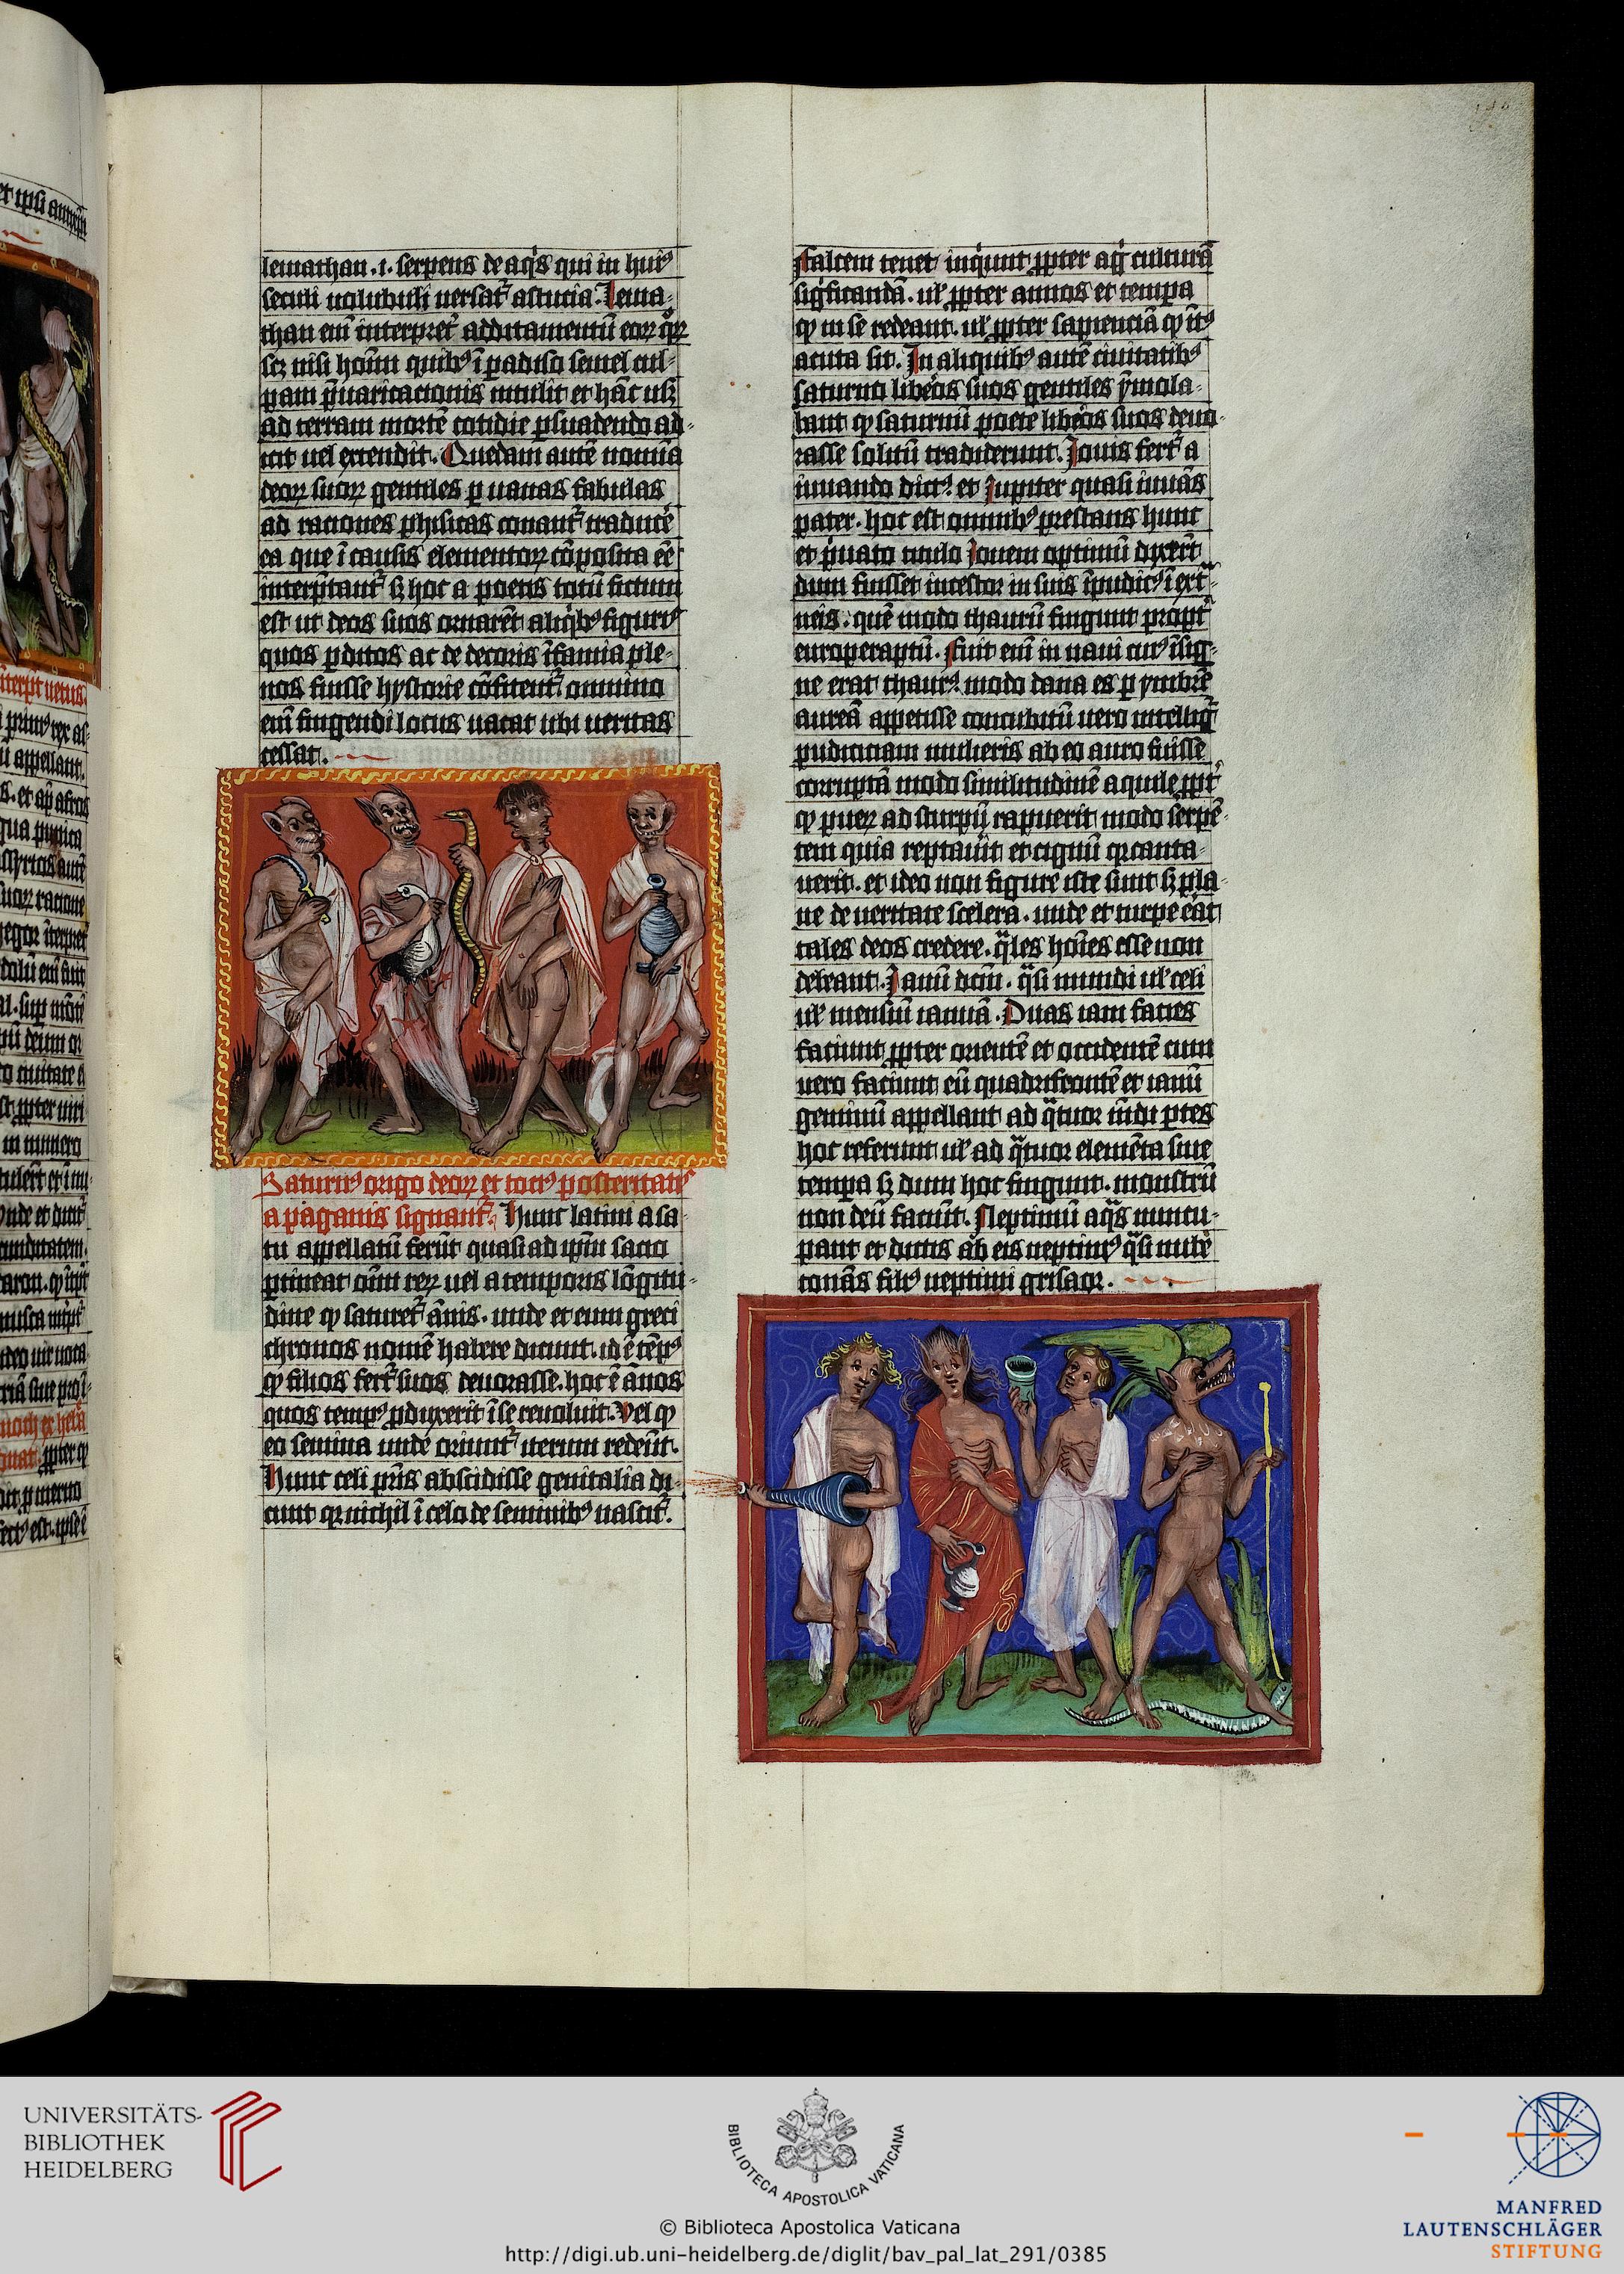 leuiathan .i. serpens de aq̓s qui in huiꝰ
seculi uolubili uersat᷑ astucia. leuia-
than em̄ interpret᷑ additamentū eoꝝ
scꝫ nisi hoīm quibꝰ ī padiso semel cul-
pam p̄uaricacionis intulit et hāc usqꝫ
ad terram mortē cotidie ꝑsuadendo ad-
icit uel extendit. Quedam autē nomīa
deoꝝ suoꝝ gentiles ꝑ uanas fabulas
ad raciones phisicas conant᷑ traducē
ea que ī causis elementoꝝ cōposita eē
interp̄tant᷑ sꝫ hoc a poetis totū fictum
est ut deos suos ornarēt aliq̓bꝰ figuris
quos ꝑditos ac dedecoris īfamia ple-
nos fuisse hystorie cōfitent᷑ omnino
em̄ fingendi locus uacat ubi ueritas
cessat.
Saturnꝰ origo deoꝝ et tociꝰ posteritatꝭ
a paganis signant᷑. Hunc latini a sa-
tu appellatū ferūt quasi ad ip̄m sacio
ꝑtineat oīm reꝝ uel a temporis lōgitu-
dine qꝫ saturet᷑ ānis. unde et eum greci
chronos nomē habere dicunt. id ē tēpꝰ
qꝫ filios fert᷑ suos deuorasse. hoc ē ānos
quos tempꝰ ꝓduxerit ī se reuoluit. Vel qꝫ
eo semina unde oriunt᷑ iterum redeūt.
Hunc celi pr̄is abscidisse genitalia di-
cunt qꝛ nichil ī celo de seminibꝰ nascit᷑.
Falcem tenet inquiunt ꝓpter ag̓culturā
sig̓ficandā. uł ꝓpter annos et tempa
qꝫ in se redeant. uł ꝓpter sapienciā qꝫ ītꝰ
acuta sit. In aliquibꝰ autē ciuitatibꝰ
saturno libe̓os suos gentiles ymola-
bant qꝫ saturnū poete libe̓os suos deuo-
rasse solitū tradiderunt. Jouis fert᷑ a
iuuando dictꝰ. et Jupiter quasi iuuās
pater. hoc est omnibꝰ prestans hunc
et p̓uato titulo Jouem optimū dixert̄
dum fuisset incestor in suis īpudicꝰ ī ext̄-
neis. quē modo thaurū fingunt propt᷑
europe raptū. Fuit em̄ in naui cuiꝰ īsig-
ne erat thaurꝰ. modo dana es ꝑ ymbrē
aureā appetisse concubitū uero intellig᷑
pudiciciam mulieris ab eo auro fuisse
corruptā modo similitudinē aquile ꝓpt᷑
qꝫ pueꝝ ad sturpū rapuerit modo serpē-
tem quia reptauit et cignū qꝛ canta-
uerit. et ideo non figure iste sunt sꝫ pla-
ne de ueritate scelera. unde et turpe erat
tales deos credere. q̄les hoīes esse non
debeant. Janū dcm̄. q̄si mundi uł celi
uł mensiū ianuā. Duas iani facies
faciunt ꝓpter orientē et occidentē cum
uero faciunt eū quadrifrontē et ianū
geminū appellant ad q̄tuor mūdi ꝑtes
hoc referunt uł ad q̄tuor elemēta siue
tempa sꝫ dum hoc fingunt. monstrū
non deū faciūt. Neptunū aq̄s nuncu-
pant et dictis ab eis neptunꝰ q̄si nube
tonās filiꝰ neptuni grisaor.
UNIVERSITÄTS-
BIBLIOTHEK
HEIDELBERG
BIBLIOTECA APOSTOLICA VATICANA
© Biblioteca Apostolica Vaticana
http://digi.ub.uni-heidelberg.de/diglit/bav_pal_lat_291/0385
MANFRED
LAUTENSCHLÄGER
STIFTUNG